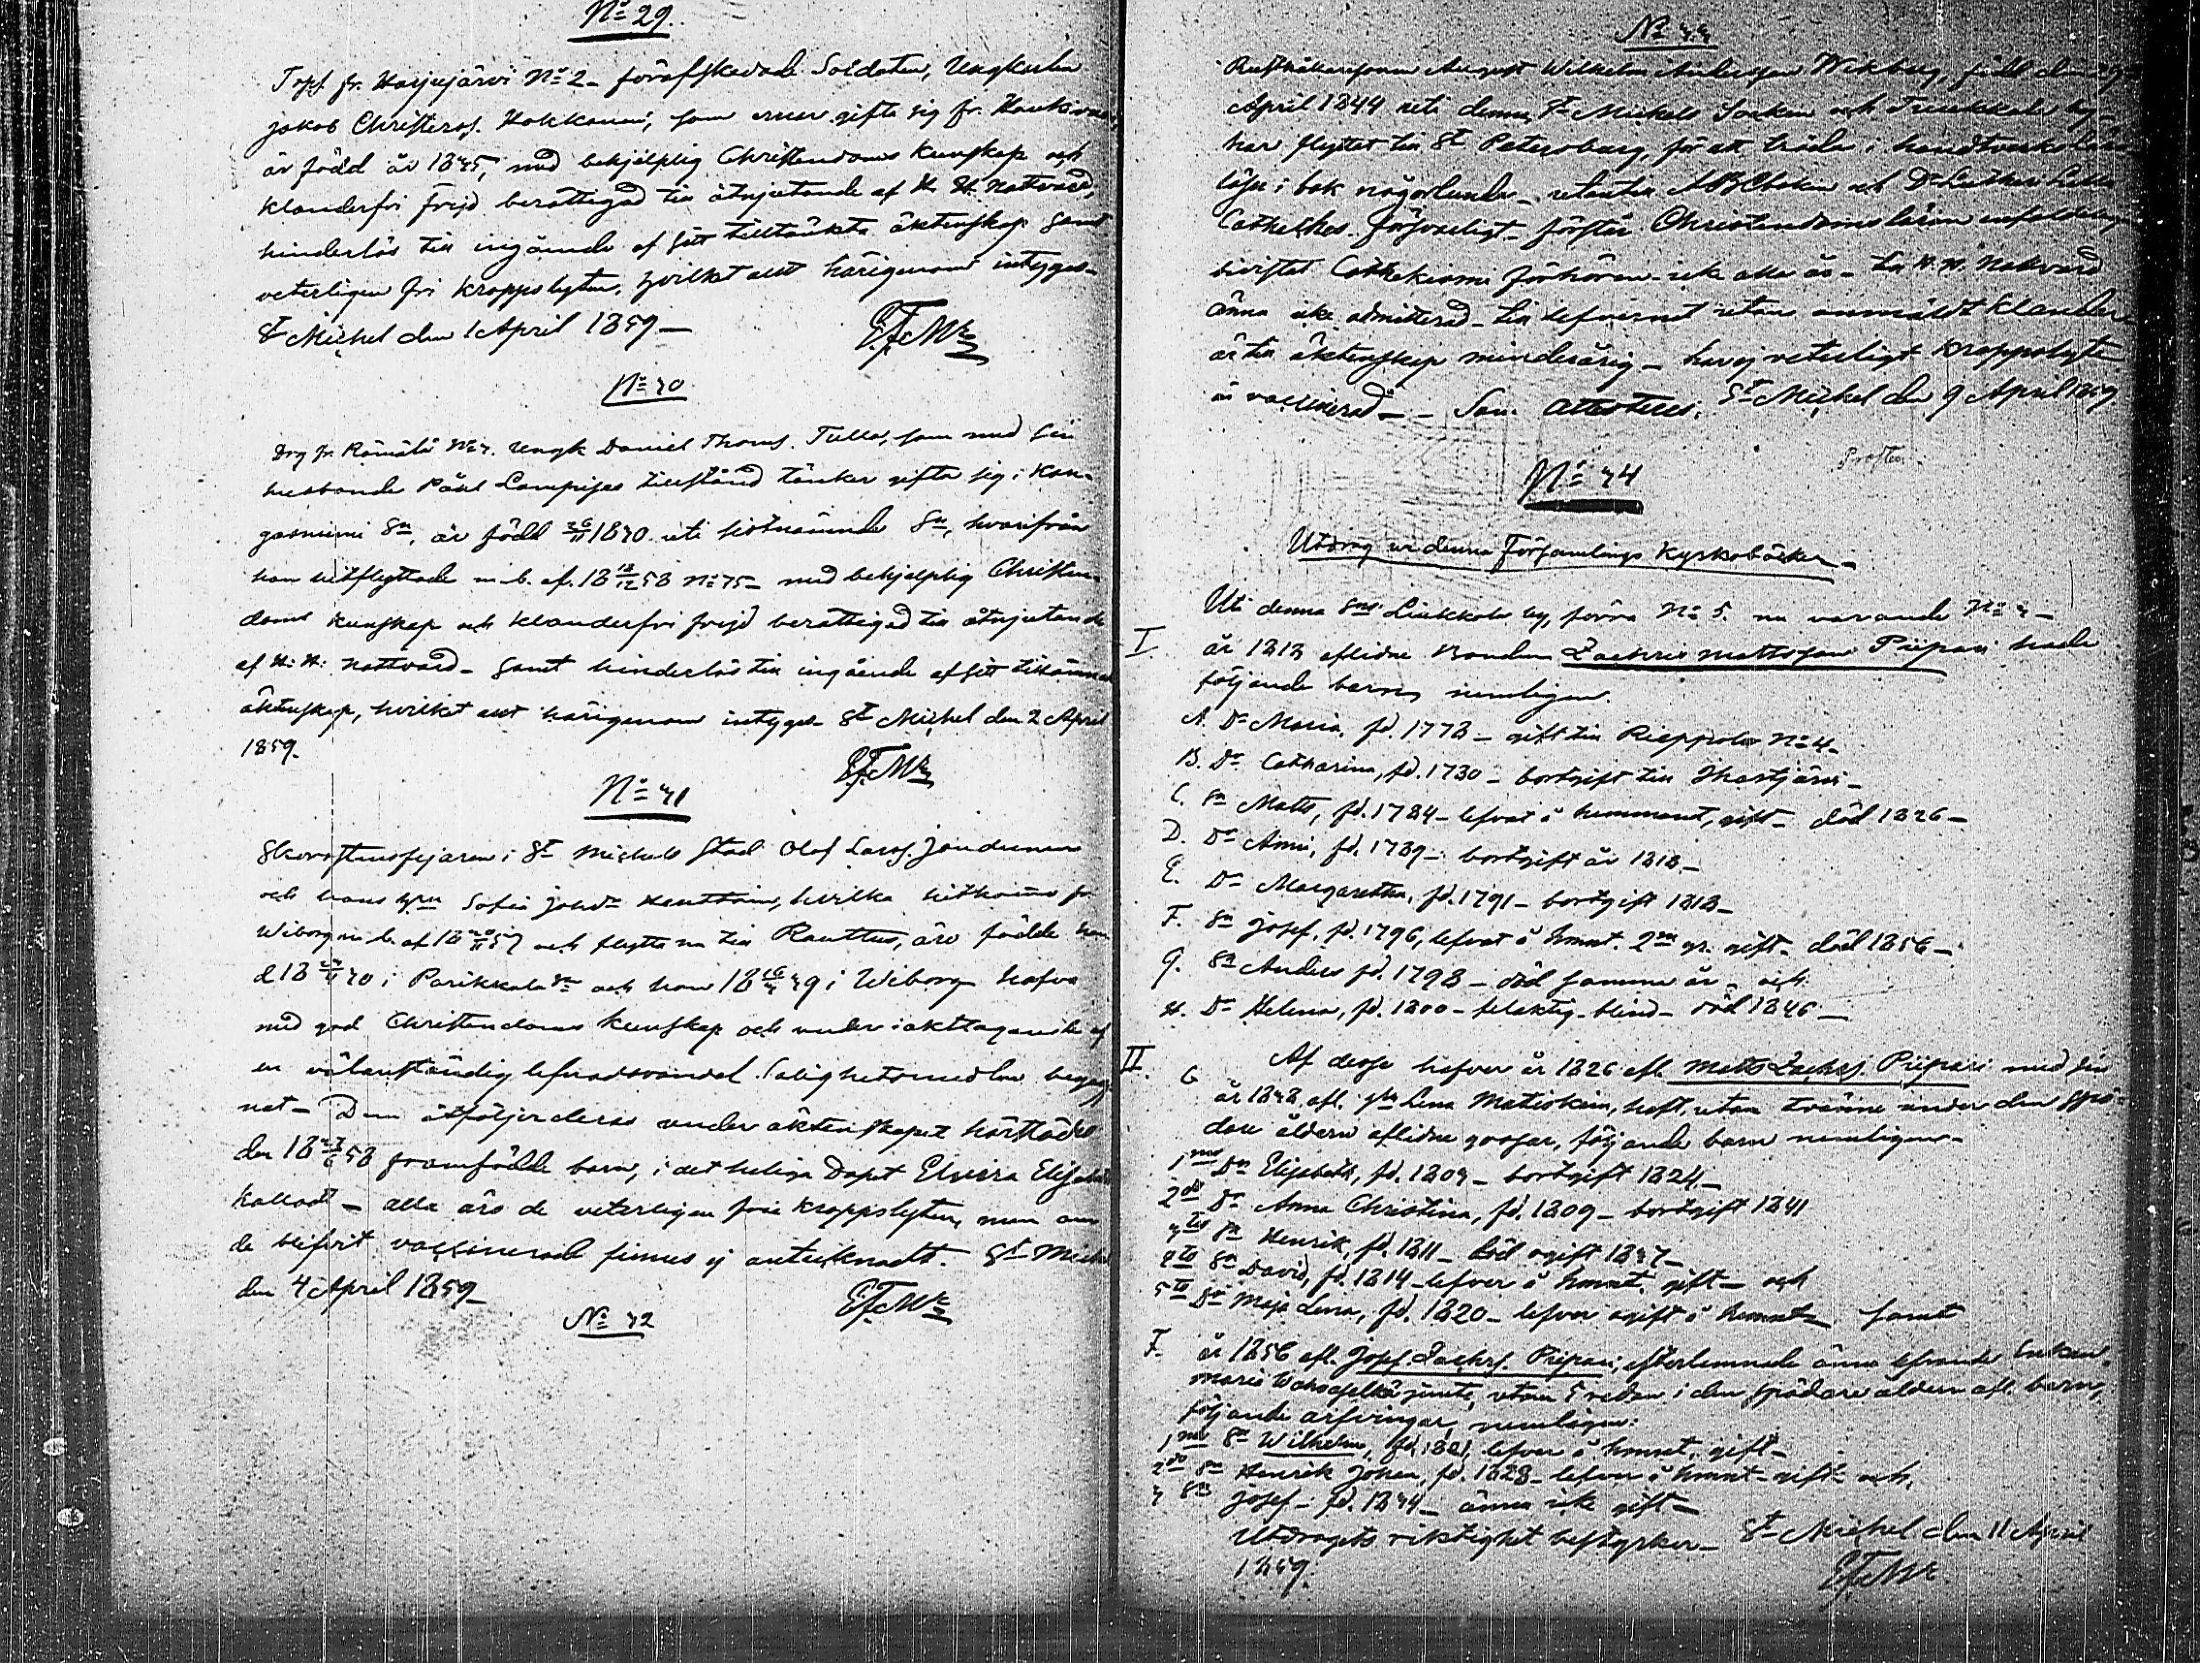 No 29.
Torp. fr. Harjujärvi No 2 - förafskedade Soldaten, Ungkarlen
Jakob Christers. Kokkonen, som ernar gifta sig fr. Haukivuori
är född år 1835, med behjelplig Christendoms kunskap och
klanderfri frejd berättigad till åtnjutande af H. H. Nattvard,
hinderlös till ingående af sitt tilltänkta äktenskap samt
veterligen fri kroppslyten, hvilket allt härigenom intygas -
St Michel den 1 April 1859 -
No 30
Drg fr. Rämälä No 3. Ungk Daniel Thoms. Tulla, som med sin
husbonde Påhl Lampisas tillstånd tänker gifta sig i Kan-
gasniemi Sn, är född 26/11 1830 uti sistnämnde Sn, hvarifrån
han hitflyttade m. b. af. 18 13/12 58 No 75 - med behjelplig Christen-
doms kunskap och klanderfri frejd berättigad till åtnjutande
af H: H: Nattvard - samt hinderlös till ingående af sitt tillämnade
äktenskap, hvilket allt härigenom intygas St Michel den 2 April
1859.
No 31
i St Michels Stad Olof Lars.
och hans hru Sofia Johsdr hvilka hitkommo fr
Wiborg m. b. af 18 57 och flytta nu till Rauttus, äro födde han
d 18 30 i Parikkala Sn och hon 18 16/3 39 i Wiborg hafva
med god Christendoms kunskap och under iakttagande af
en välanständig lefnadsvandel Salighetsmedlen begag-
nat - Dem åtföljer deras under äktenskapet härstädes
den 18 58 framfödde barn, i det heliga Dopet Elvira Elisabeth
kalladt - alla äro de veterligen frie kroppslyten, men om
de blifvit vaccinerade finnes ej antecknadt. St Michel
den 4 April 1859 -
No 32
No 33
August Wilhelm Andersson Wikberg, född den
April 1844 uti denna St Michels Socken och by
har flyttat till St Petersburg, för att träda i handtverks lära
läser i bok någorlunda - utantill ABCboken och Dr Luthers Lilla
Cathekes. försvarligt - förstår Christendomsläran enfaldeligen
bivistat Cathekismi förhören icke alla år - till H. H. Nattvard
ännu icke admitterad - till lefvernet utan anmäldt klander
är till äktenskap minderårig - har ej veterligt kroppslyte
är vaccinerad - - Som attesteras; St Michel den 9 April 1859
Prosten.
No 34
Utdrag ur denna Församlings Kyrkoböcker -
I Uti denna Sns Liukkola by, förra No 5. nu varande No 3 -
år 1813 aflidne Bonden Zachris Mattsson Piipari hade
följande barn, nemligen.
A. Dr Maria, fd. 1778 - gift till Rieppola No 4 -
B. Dr Catharina, fd. 1780 - bortgift till Ihastjärvi -
C. Sn Matts, fd. 1784 - lefvat å hemmanet, gift - död 1826 -
D. Dr Anni, fd. 1789 - bortgift år 1818 -
E. Dr Margaretha, fd. 1791 - bortgift 1818 -
F. Sn Josef, fd. 1796, lefvat å hmnt. 2ne gr. gift - död 1856 -
G. Sn Anders fd. 1798 - död samma år - och
H. Dr Helena, fd. 1800 - felaktig - blind - död 1846 -
II. Af desse hafver år 1826 afl. Matts Zachrs. Piipari med sin
C år 1848 afl. hu Lena Matiskein, haft, utan tvänne under den spä-
dare åldern aflidne gossar, följande barn nemligen -
1mo Dr Elisabeth, fd. 1803 - bortgift 1824 -
2do Dr Anna Christina, fd. 1809 - bortgift 1841
3tio Sn Henrik, fd. 1811 - död ogift 1837 -
4to Sn David, fd. 1814 - lefver å hmnt. gift - och
5to Dr Maja Lena, fd. 1820 - lefver ogift å hemmt. Samt
F. år 1856 afl. Josef Zachrs. Piipari, efterlemnade ännu lefvande Enkan
Maria jemte, utom 5 redan i den spädare åldern afl. barn,
följande arfvingar nemligen:
1mo Sn Wilhelm, fd. 1821, lefver å hmnt, gift -
2do Sn Henrik Johan, fd. 1828 - lefver å hmnt - gift - och,
3 Sn Josef - fd. 1834 - ännu icke gift -
Utdragets riktighet bestyrker - St Michel den 11 April
1859.